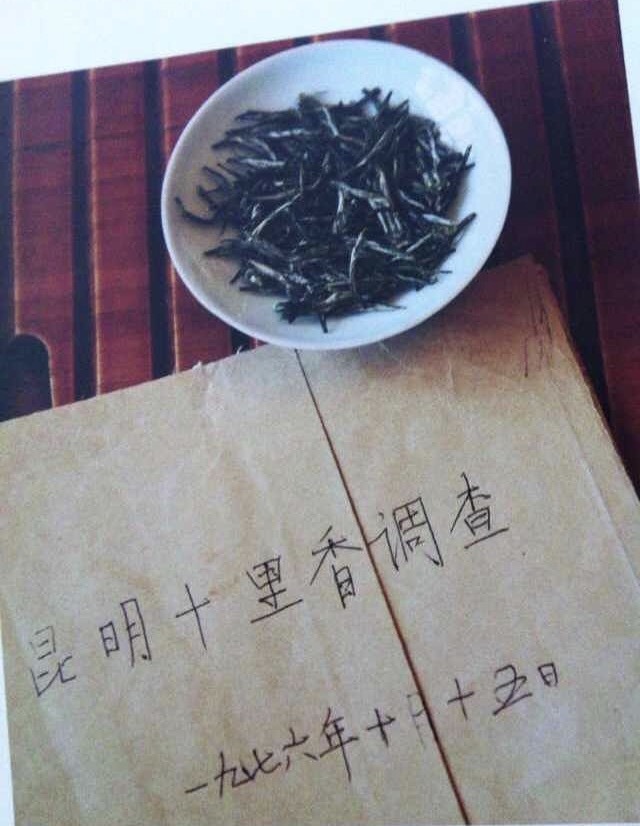 昆明十里香调查
一九七六年十月十五日